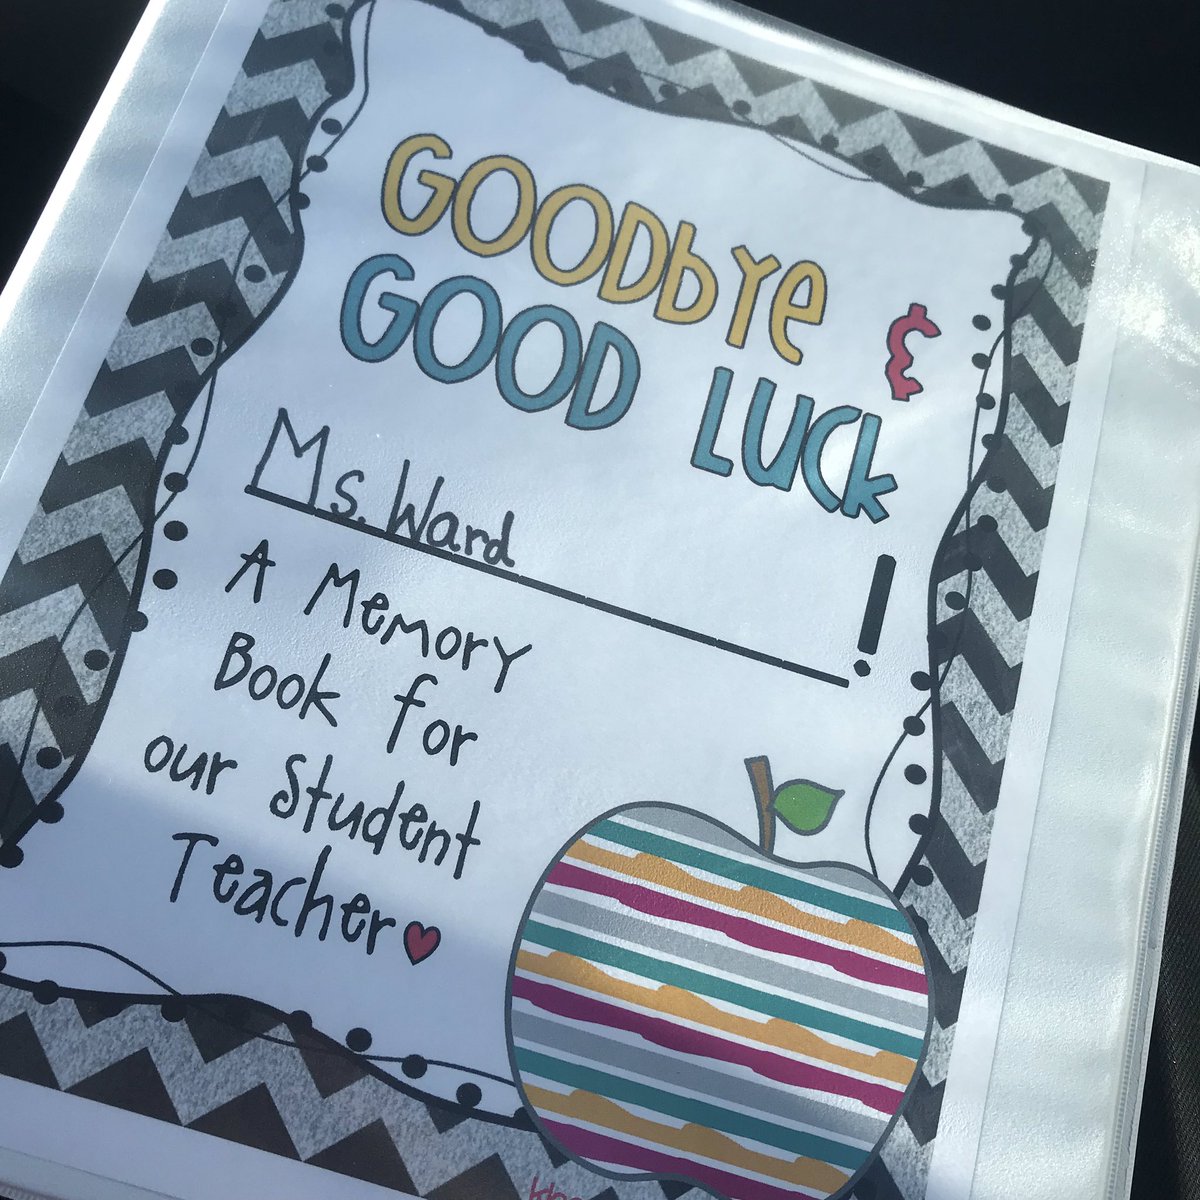 GOODbYe &
GOOD LUCK
Ms. Ward !
A Memory
Book for
our Student
Teacher